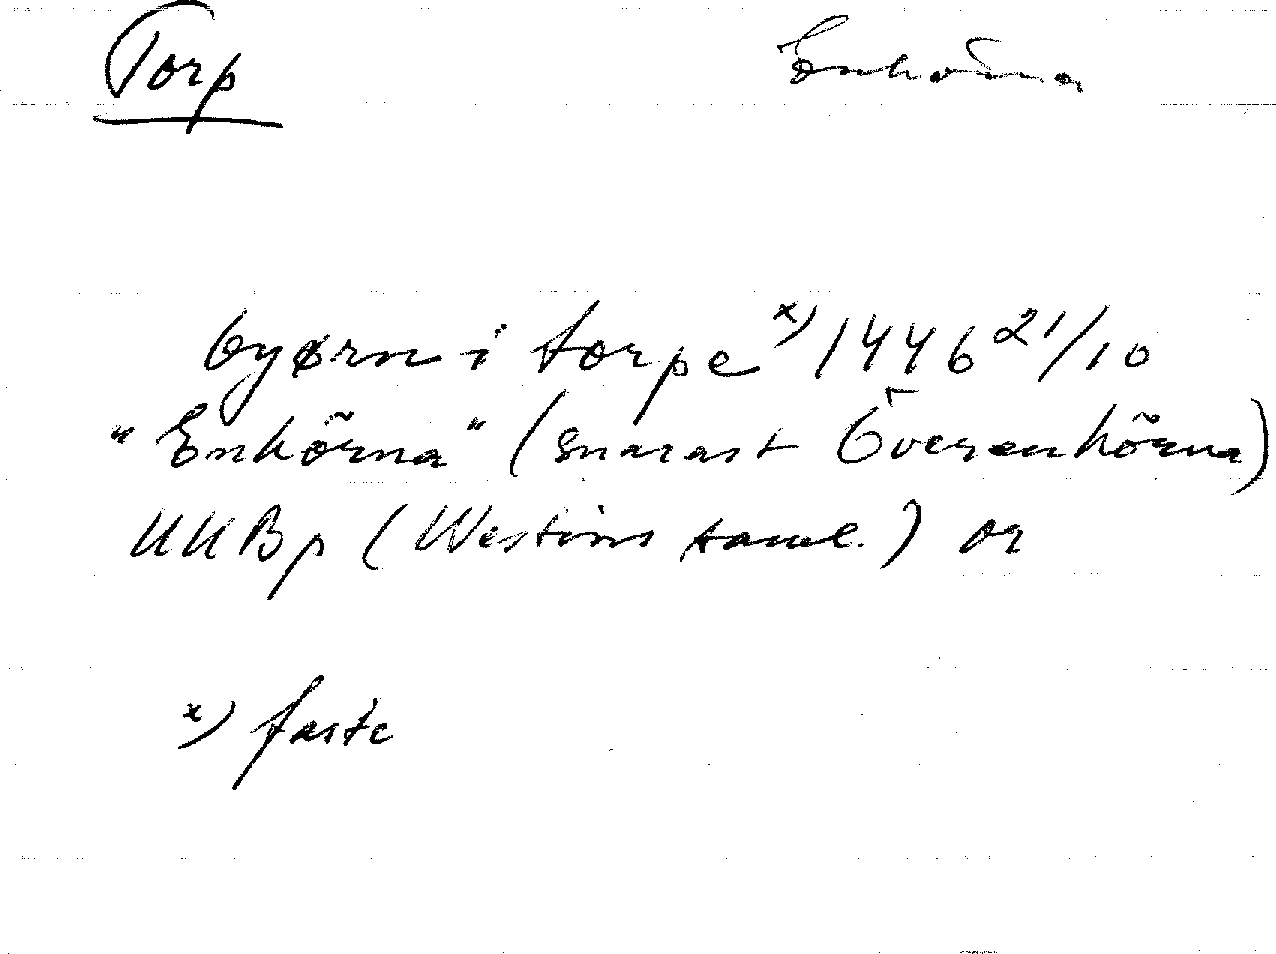 Torp Enhörna
byørn i torpe x) 1446 21/10
"Enhörna" (snarast Överenhörna)
UUBp (Westins saml.) or
x) faste